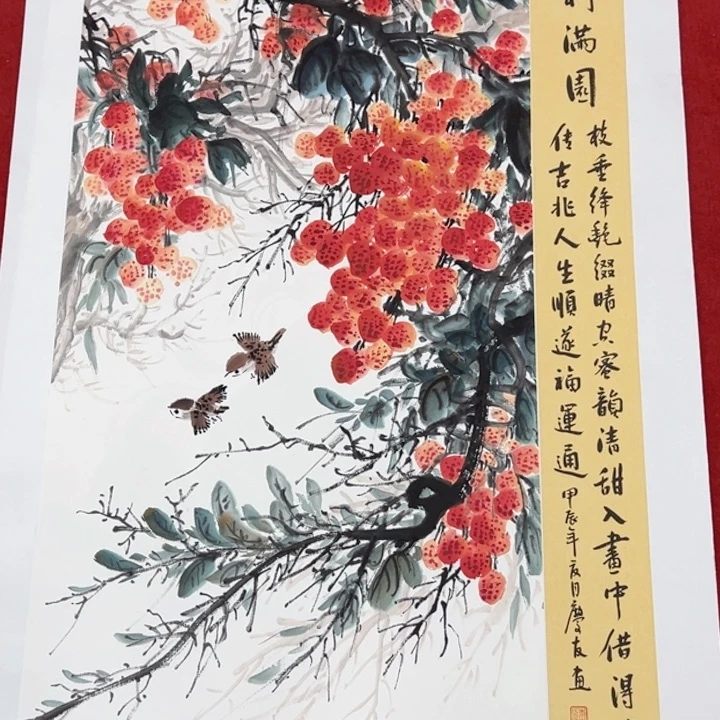 满園
枝垂绛艳缀晴空蜜韻清甜入畫中借得
佳吉兆人生順遂福運通
甲辰年夏月慶友画